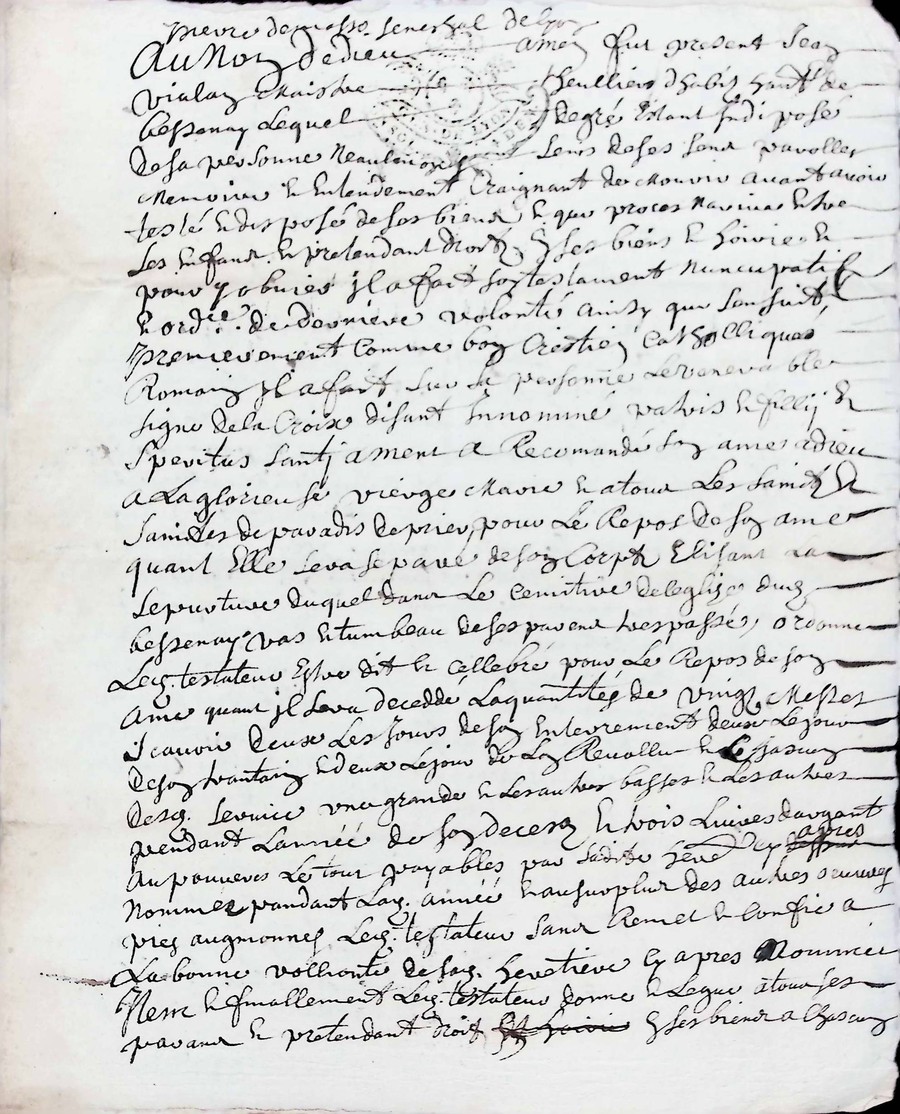 pierre de masso senechal de Lyon
Au Nom de dieu amen fut present Jean
vialon Maistre theullier habitant de
bessenay Lequel de gré Estant Indisposé
de sa personne Neaulmoins sens de ses sens parolles
Memoire et Entendement Craignant de Mourir avant avoir
testé et disposé de ses biens et que proces Narriva Entre
Les Enfans et pretendant droit en ses biens et hoirie et
pour y obvier il a fait son testament Nuncupatif
et ord.re de derniere volonté Ainsy que sensuit
premierement Comme bon Crestien Catholliques
Romain il a fait sur sa personne Le venerable
signe de la Croix disant In nomine patris et fillij et
speritus santj ament a Recomandé son ame a dieu
a La glorieuse vierge Marie et a tous Les saints et
saintes de paradis de prier pour Le Repos de son ame
quant Elle sera separé de son Corps Elisant La
sepurture duquel dans Le Cemitire de leglize dud.
bessenay vas et tumbeau de ses parens trespassés, ordonne
Led. testateur Estre dit et Cellebré pour Le Repos de son
Ame quant il sera decedde La quantités de vingt Messes
scavoir deux Les Jours de son Enterrement deux Le jour
de son trantain et deux Le jour de La Revollu et Chascun
desd. service une grande et Les autres basses et Les autres
pendant Lannée de son deces et trois Livres dargent
Au pouvres Le tout payables par sadite here cy apres
Nommee pandant Lad. année et au surplus des autres oeuvres
pies augmonnes Led. testateur sans Remet et Confie a
La bonne vollionté de sad. heretiere Cy apres Nommée
Item et finallement Led. testateur donne et Legue a tous ses
parans et pretendant droit en ses biens a Chascun